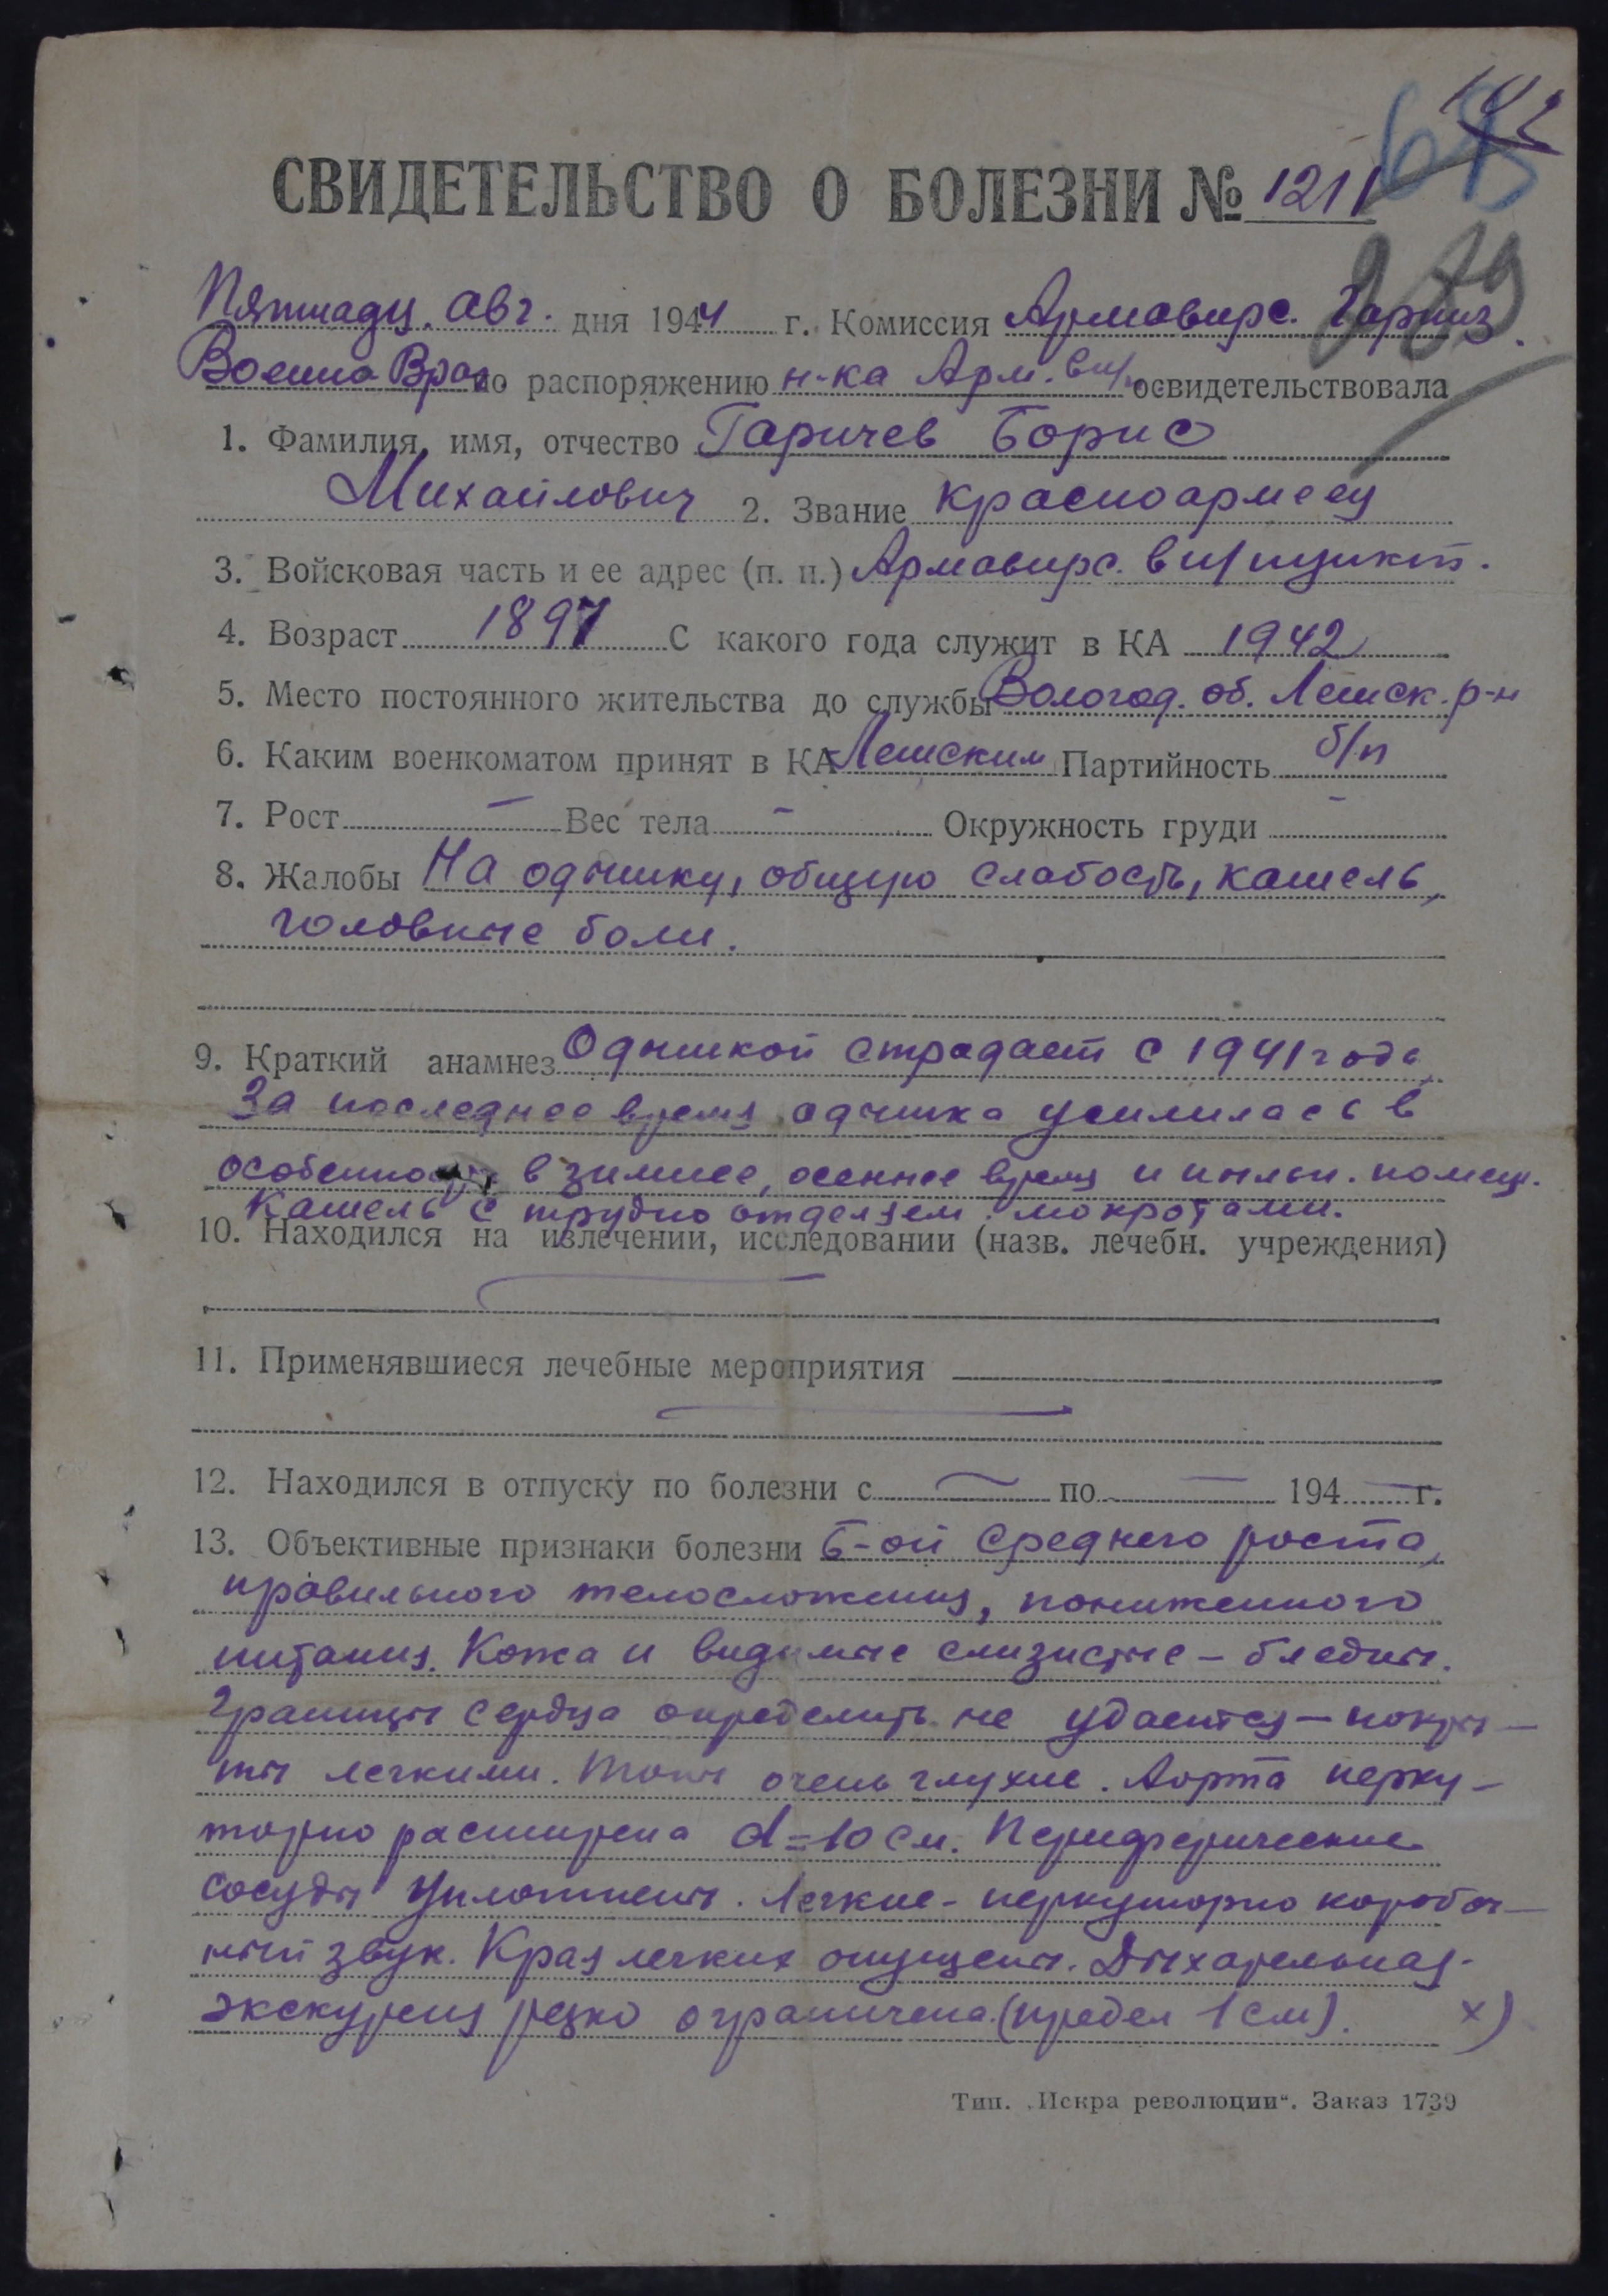 СВИДЕТЕЛЬСТВО О БОЛЕЗНИ № 1211
Пятнадц. авг. дня 1944 г. Комиссия Армавирс. Гарниз.
Военно Врач по распоряжению н-ка Арм. в п/п освидетельствовала
1. Фамилия, имя, отчество Гаричев Борис
Михайлович 2. Звание красноармеец
3. Войсковая часть и ее адрес (п. п.) Армавирс. в п/пункт.
4. Возраст 1897 С какого года служит в КА 1942
5. Место постоянного жительства до службы Вологод. об. Лешск. р-н
6. Каким военкоматом принят в КА Лешским Партийность б/п
7. Рост – Вес тела – Окружность груди –
8. Жалобы На одышку, общую слабость, кашель,
головные боли.
9. Краткий анамнез Одышкой страдает с 1941 года
За последнее время одышка усилилась в
особенности в зимнее, осеннее время и пыльн. помещ.
Кашель с трудно отделяем. мокротами.
10. Находился на излечении, исследовании (назв. лечебн. учреждения)
11. Применявшиеся лечебные мероприятия
12. Находился в отпуску по болезни с – по – 194 – г.
13. Объективные признаки болезни Б-ой среднего роста,
правильного телосложения, пониженного
питания. Кожа и видимые слизистые – бледны.
Границы сердца определить не удается – покры-
ты легкими. Тоны очень глухие. Аорта перку-
торно расширена d=10 см. Периферические
сосуды уплотнены. Легкие - перкуторно коробоч-
ный звук. Края легких опущены. Дыхательная
экскурсия резко ограничена (предел 1 см). х)
Тип. „Искра революции“. Заказ 1739